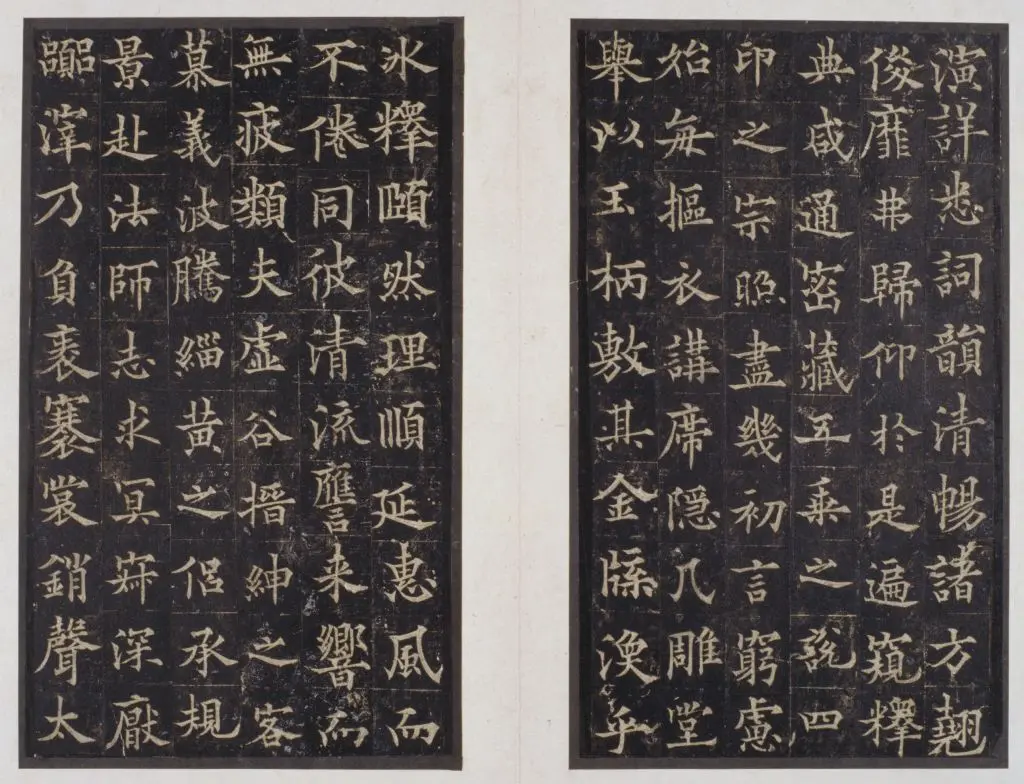 演詳悉詞韻清暢諸方翹
俊靡弗歸仰於是遍窺釋
典咸通密藏五乘之說四
印之宗照盡幾初言窮慮
始每摳衣講席隱几雕堂
舉以玉柄敷其金牒渙乎
冰釋頤然理順延惠風而
不倦同彼清流譍来響而
無疲類夫虛谷搢紳之客
慕義波騰緇黄之侶承規
景赴法師志求冥寂深厭
囂滓乃負袠褰裳銷聲太